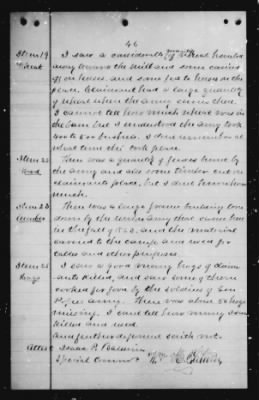 46
Item 19
Wheat
I saw a considerable quantity of wheat hauled
away towards the mill and some carried
off on horses and some fed to horses on the
place. Claimant had a large quantity
of wheat when the army came there.
I cannot tell how much wheat was in
the barn but I understood the army took
I dont remember at
what time this took place.
Item 22
Wood
There was a quantity of fences burned by
the army and also some timber cut on
claimants place, but I dont know how
much.
Item 23
Lumber
There was a large frame building torn
down by the Union army that came here
in the fall of 1863, and the material
carried to the camps and used for
tables and other purposes.
Item 25
Hogs
I saw a good many hogs of claim
ants killed, and saw some of them
cooked for food by the soldiers of Gen
army. There was also sheep
missing. I cant tell how many
killed and used.
And further deponent saith not.
Attest
Special Commr